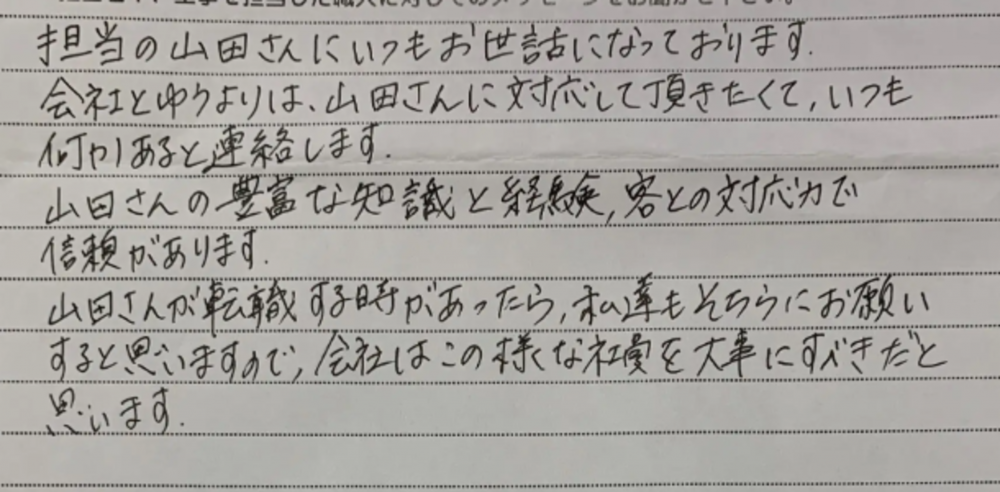 工事を担当した職人に対してのメッセージをお聞かせ下さい。
担当の山田さんにいつもお世話になっております.
会社とゆうよりは、山田さんに対応して頂きたくて、いつも
何かあると連絡します.
山田さんの豊富な知識と経験,客との対応力で
信頼があります.
山田さんが転職する時があったら,私達もそちらにお願い
すると思いますので,会社はこの様な社員を大事にすべきだと
思います.